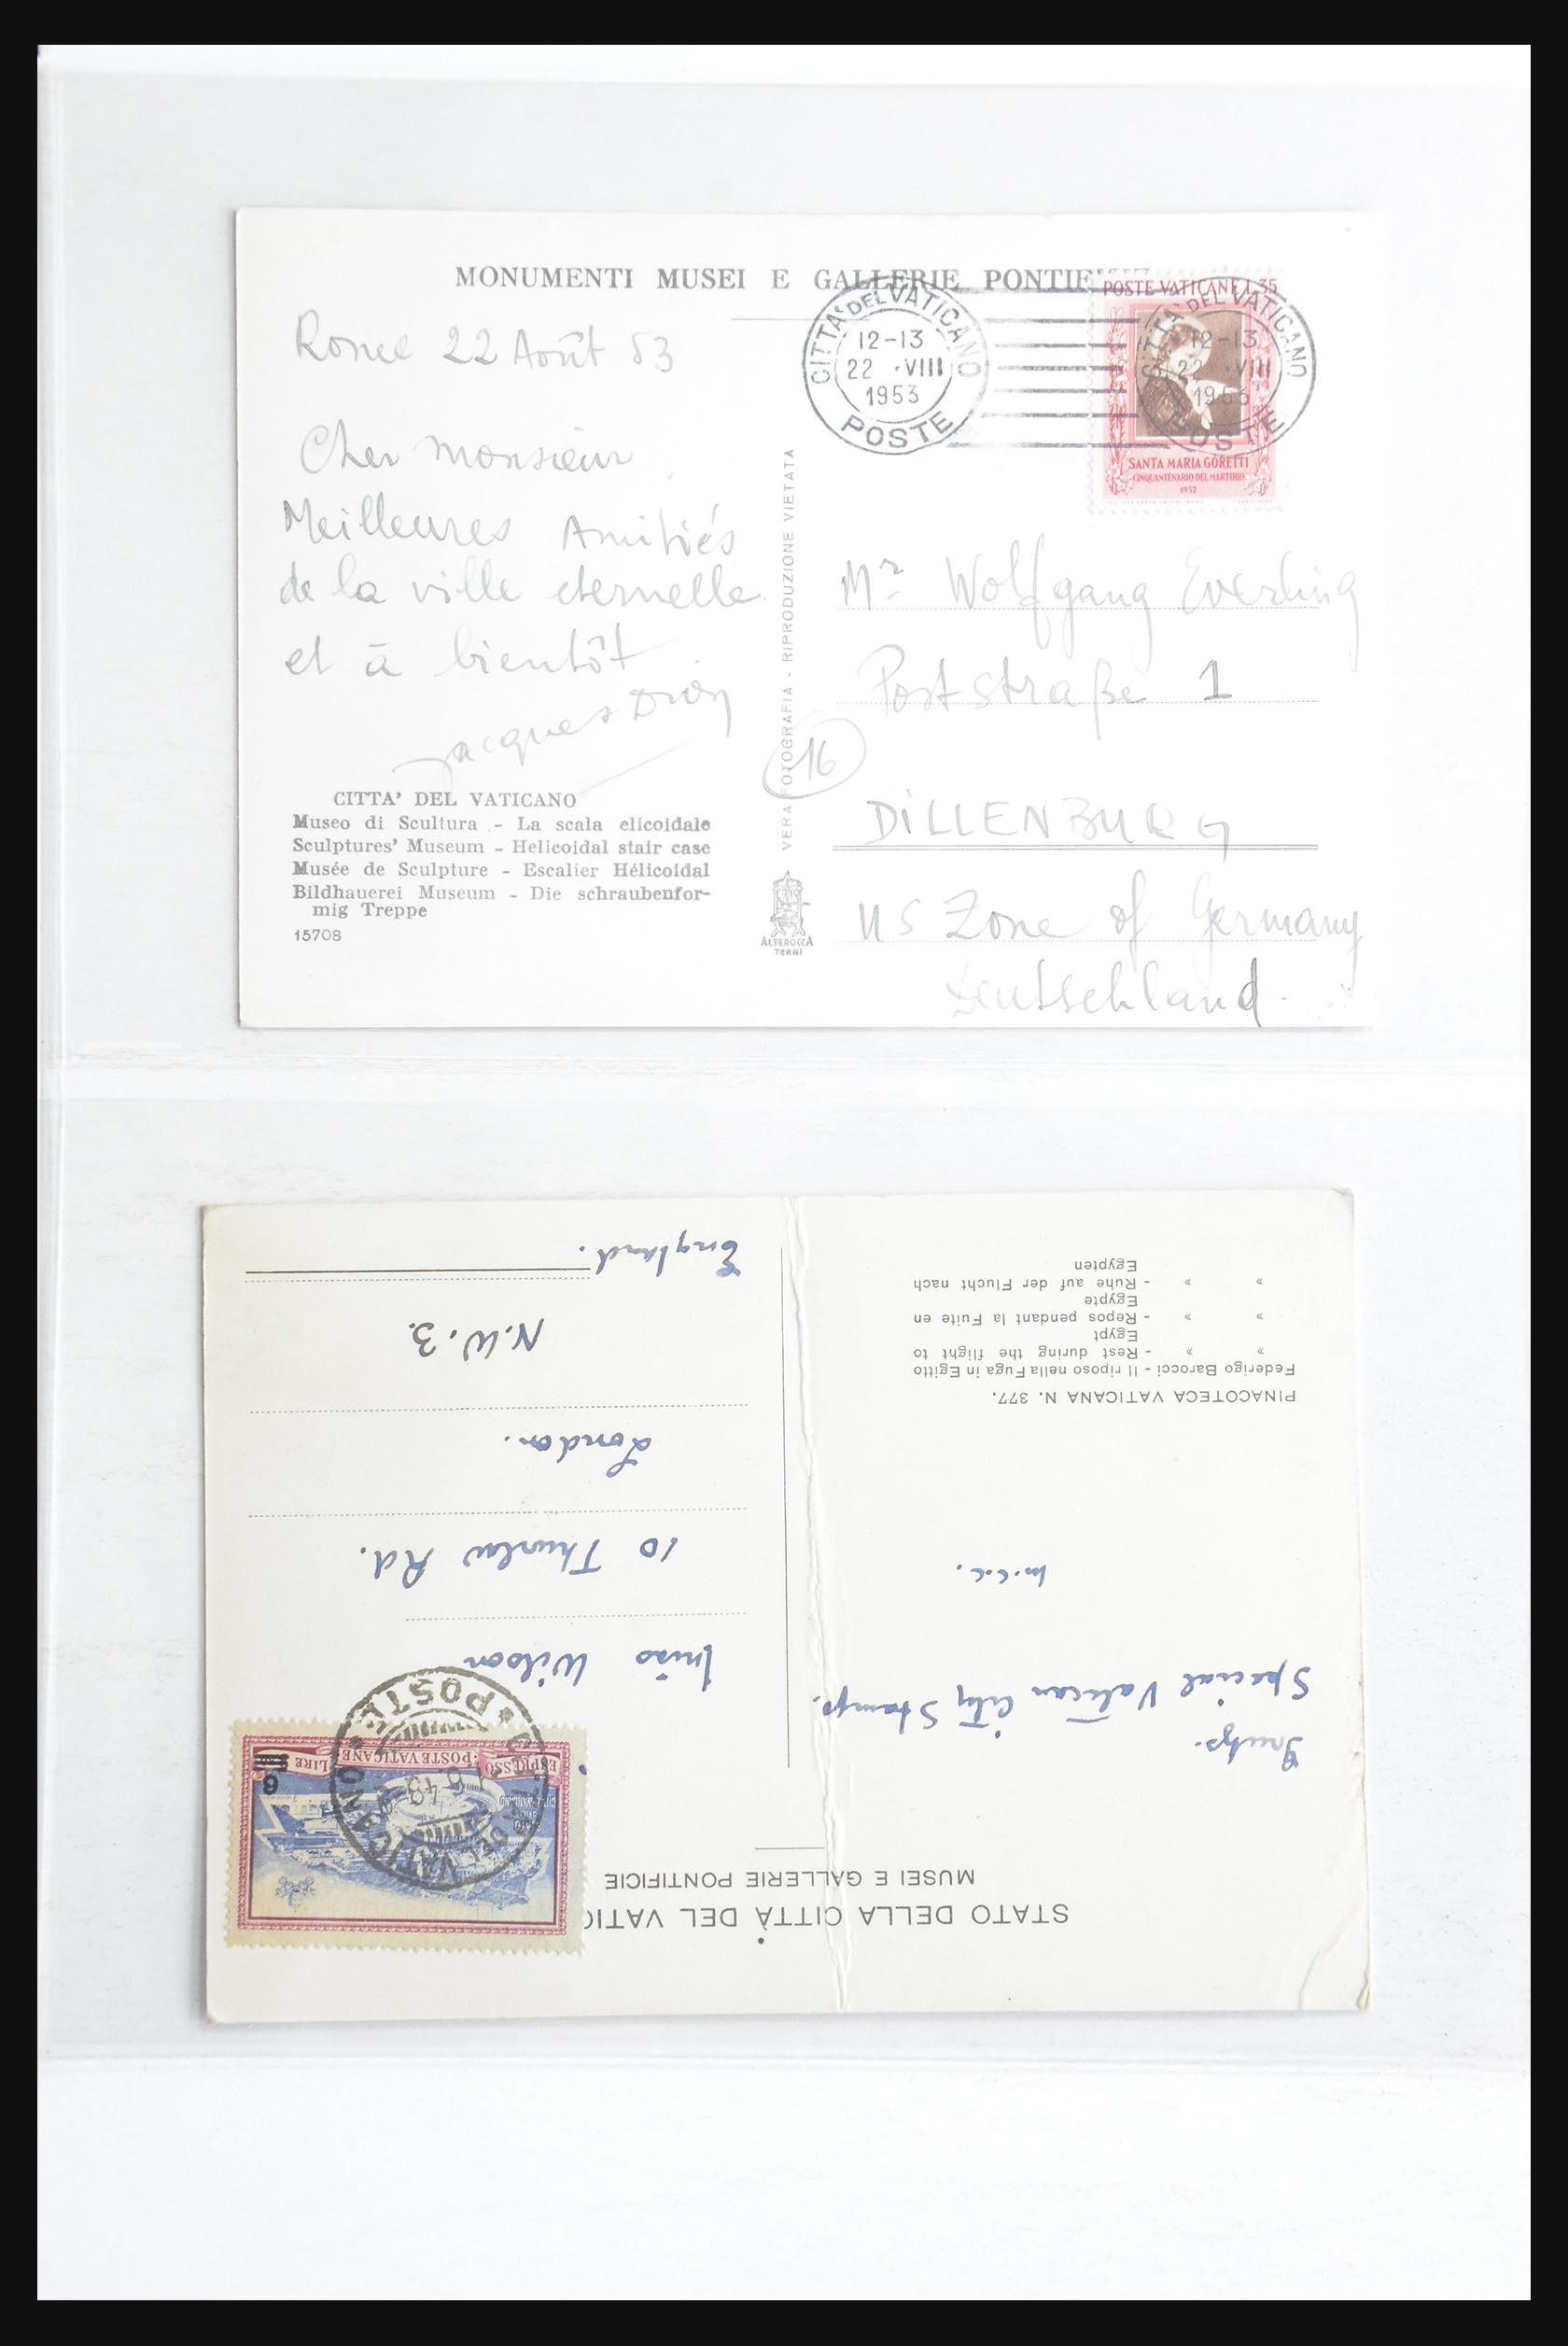 MONUMENTI MUSEI E GALLERIE PONTIF
POSTE VATICANE L.35
CITTA' DEL VATICANO
12-13
22 ·VIII
1953
POSTE
CITTA' DEL VATICANO
12-13
22 ·VIII
1953
POSTE
SANTA MARIA GORETTI
CINQUANTENARIO DEL MARTIRIO
1952
Rome 22 Août 53
Cher monsieur,
Meilleures Amitiés
de la ville eternelle
et à bientôt
Jacques
CITTA' DEL VATICANO
Museo di Scultura - La scala elicoidale
Sculptures' Museum - Helicoidal stair case
Musée de Sculpture - Escalier Hélicoidal
Bildhauerei Museum - Die schraubenfor-
mig Treppe
15708
VERA FOTOGRAFIA - RIPRODUZIONE VIETATA
16
ALTEROCCA
TERNI
Mr Wolfgang Everling
Poststraße 1
DILLENBURG
US Zone of Germany
Deutschland.
STATO DELLA CITTÀ DEL VATIC
MUSEI E GALLERIE PONTIFICIE
Special Vatican City Stamp.
m.c.c.
PINACOTECA VATICANA N. 377.
Federigo Barocci - Il riposo nella Fuga in Egitto
» » - Rest during the flight to
Egypt
» » - Repos pendant la Fuite en
Egypte
» » - Ruhe auf der Flucht nach
Egypten
6
ESPRESSO POSTE VATICANE LIRE
CITTA DEL VATICANO
POSTE
Miss Wilson
10 Thurlow Rd.
London.
N.W.3.
England.